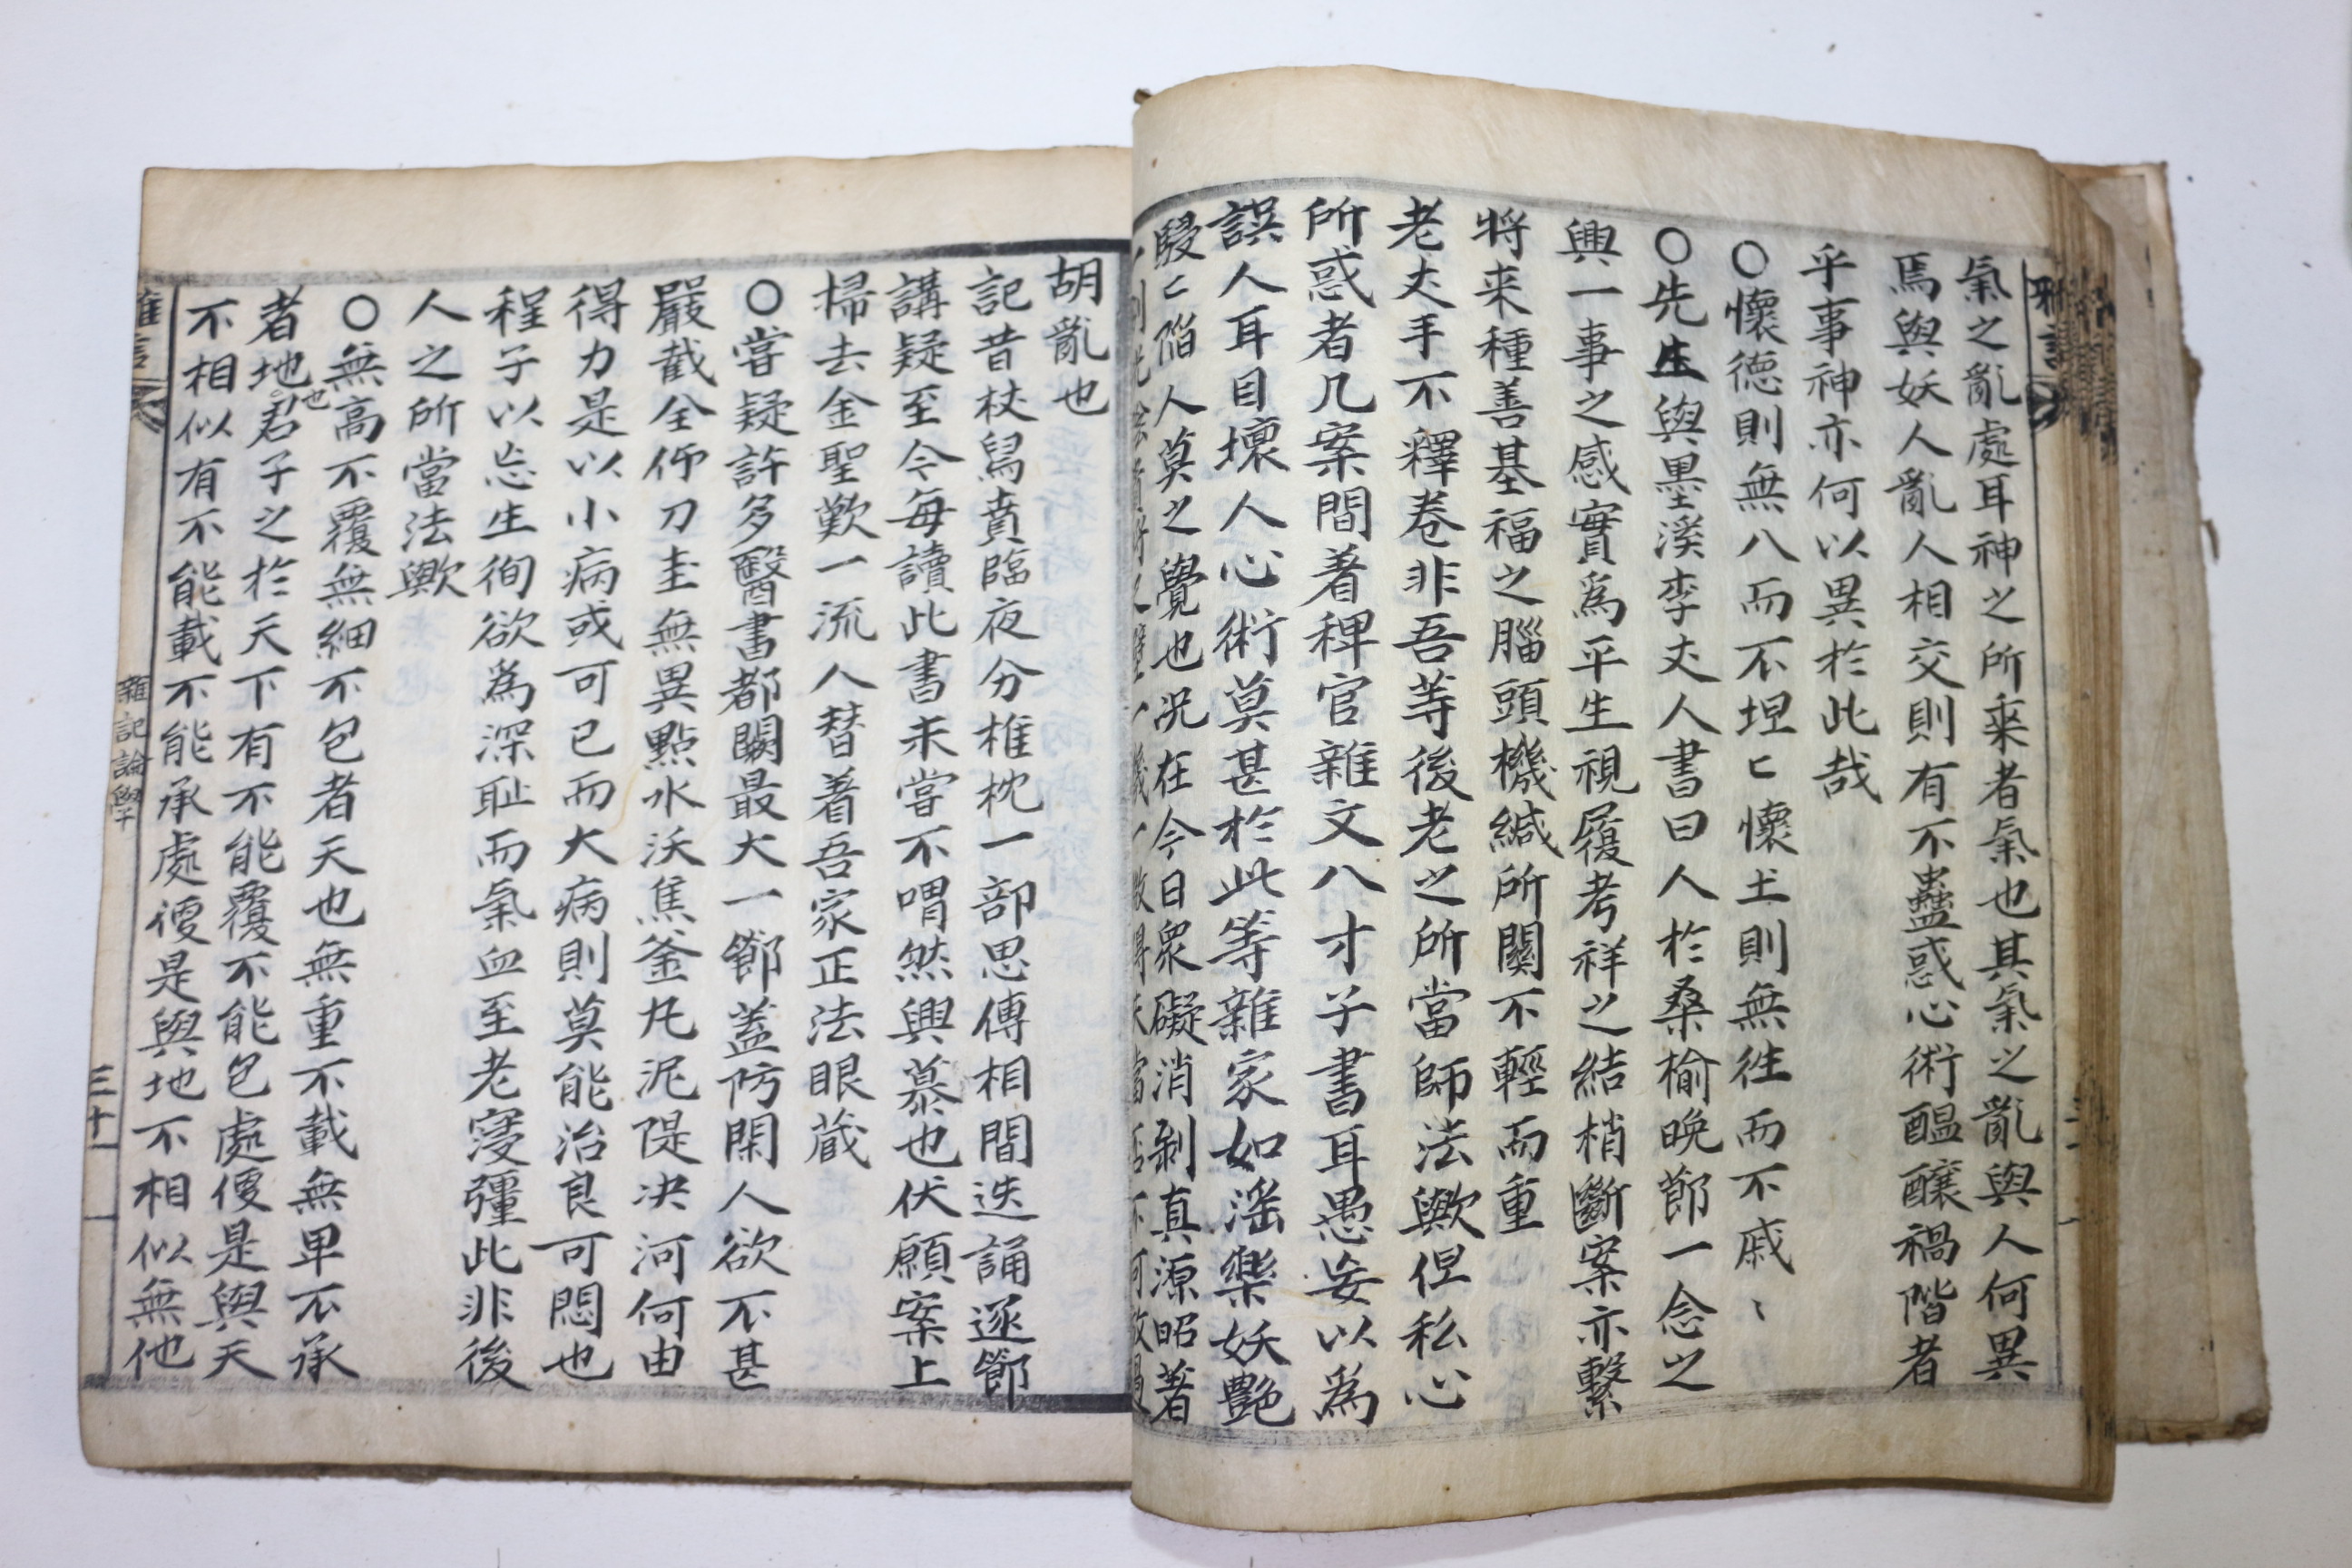 氣之亂處耳神之所乘者氣也其氣之亂與人何異
焉與妖人亂人相交則有不蠱惑心術醞釀禍階者
乎事神亦何以異於此哉
○懷德則無入而不坦〻懷土則無往而不戚〻
○先生與墨溪李丈人書曰人於桑榆晚節一念之
興一事之感實爲平生視履考祥之結梢斷案亦繫
將来種善基福之腦頭機緘所關不輕而重
老丈手不釋卷非吾等後老之所當師法歟但私心
所惑者几案間著稗官雜文八才子書耳愚妄以爲
誤人耳目壞人心術莫甚於此等雜家如滛樂妖艶
駸〻陷人莫之覺也况在今日衆礙消剝真源昭著
胡亂也
記昔杖舄賁臨夜分推枕一部思傳相間迭誦逐節
講疑至今每讀此書未嘗不喟然興慕也伏願案上
掃去金聖歎一流人替著吾家正法眼蔵
○嘗疑許多醫書都闕最大一節蓋防閑人欲不甚
嚴截全仰刀圭無異點水沃焦釜丸泥隄决河何由
得力是以小病或可已而大病則莫能治良可悶也
程子以忘生徇欲爲深耻而氣血至老寖彊此非後
人之所當法歟
○無高不覆無細不包者天也無重不載無卑不承
者地也君子之於天下有不能覆不能包處便是與天
不相似有不能載不能承處便是與地不相似無他
雜言
雜記論學
三十一